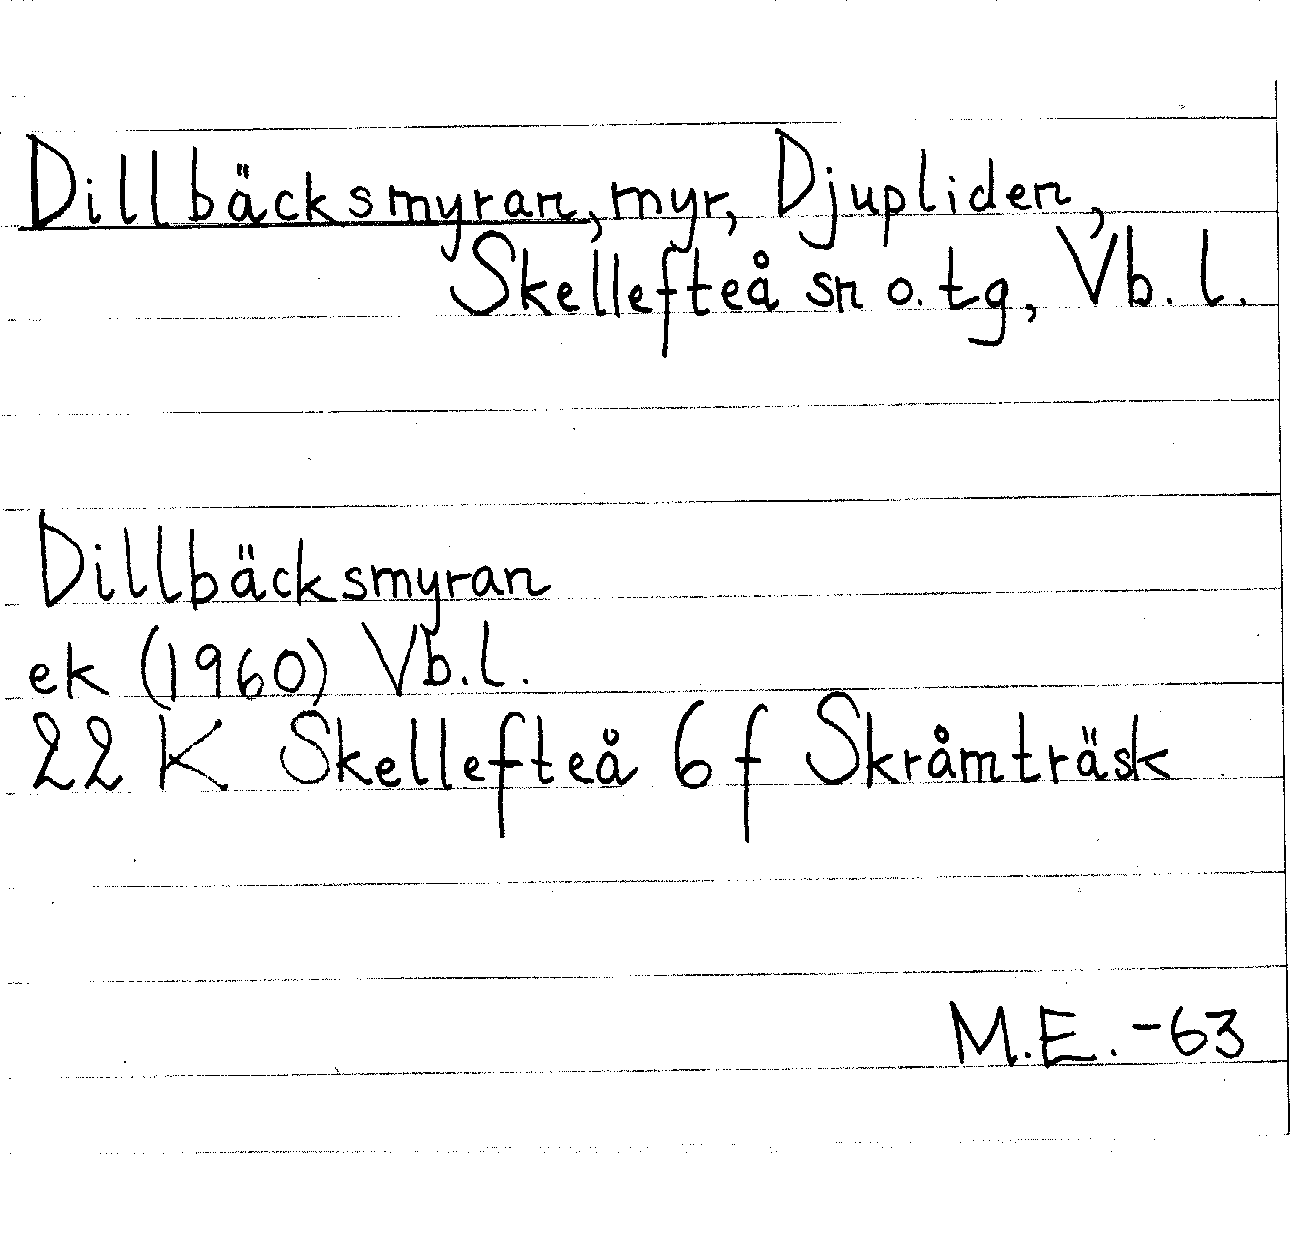 Dillbäcksmyran, myr, Djupliden,
Skellefteå sn o. tg, Vb. l.
Dillbäcksmyran
ek (1960) Vb. l.
22 K Skellefteå 6 f Skråmträsk
M.E. -63